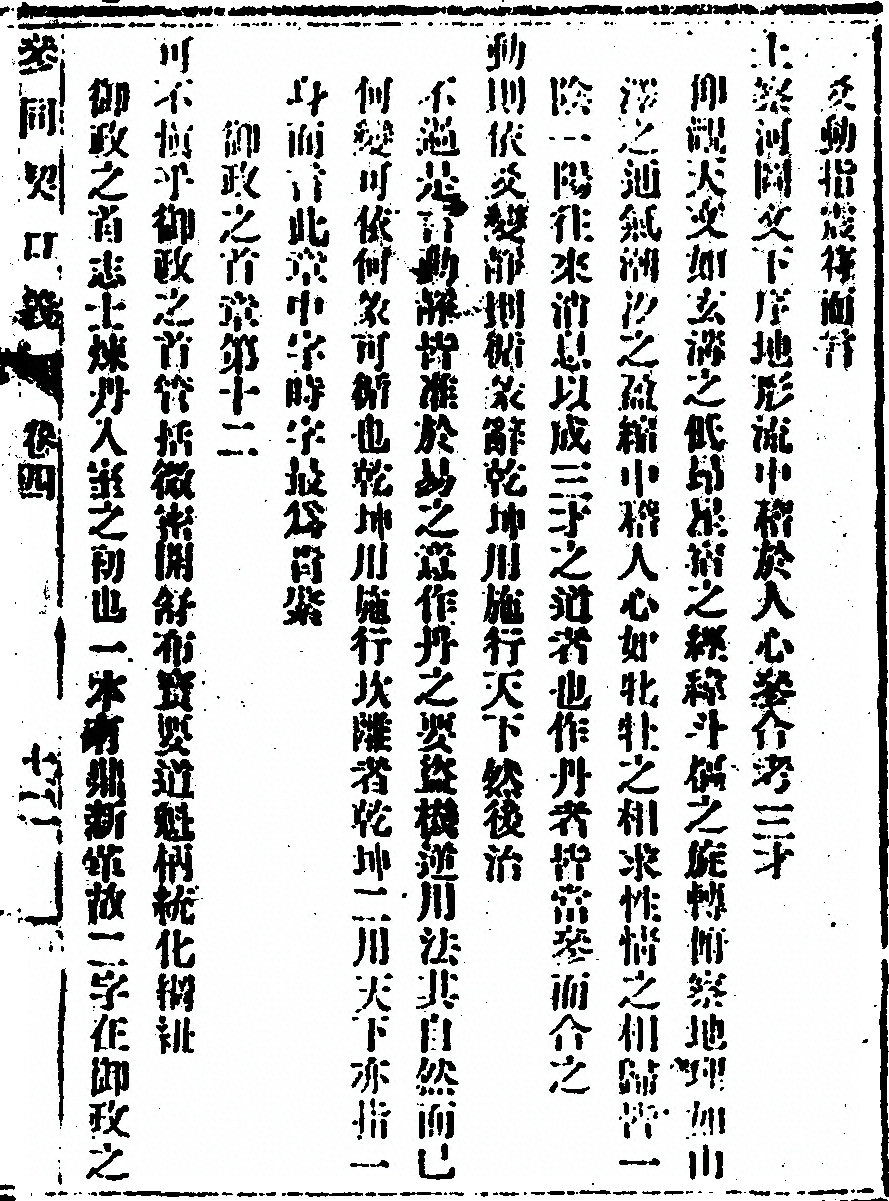 爻動指歲稱而言
上察河圖文下序地形流中稽於人心參合考三才
仰觀天文如玄溝之低昂星宿之經緯斗樞之旋轉俯察地理如山
澤之通氣潮汐之盈縮中稽人心如牝牡之相求性情之相歸皆一
陰一陽往來消息以成三才之道者也作丹者皆當參而合之
動則依爻變靜則循彖辭乾坤用施行天下然後治
不過是言動靜皆准於易之意作丹之要盜機逆用法其自然而已
何變可依何彖可循也乾坤用施行坎離者乾坤二用天下亦指一
身而言此章中字時字最為肯綮
御政之首章第十二
可不慎乎御政之首管括微密開舒布寶要道魁柄統化綱紐
御政之首志士煉丹入室之初也一本有鼎新革故二字在御政之
參同契口義 卷四 十二